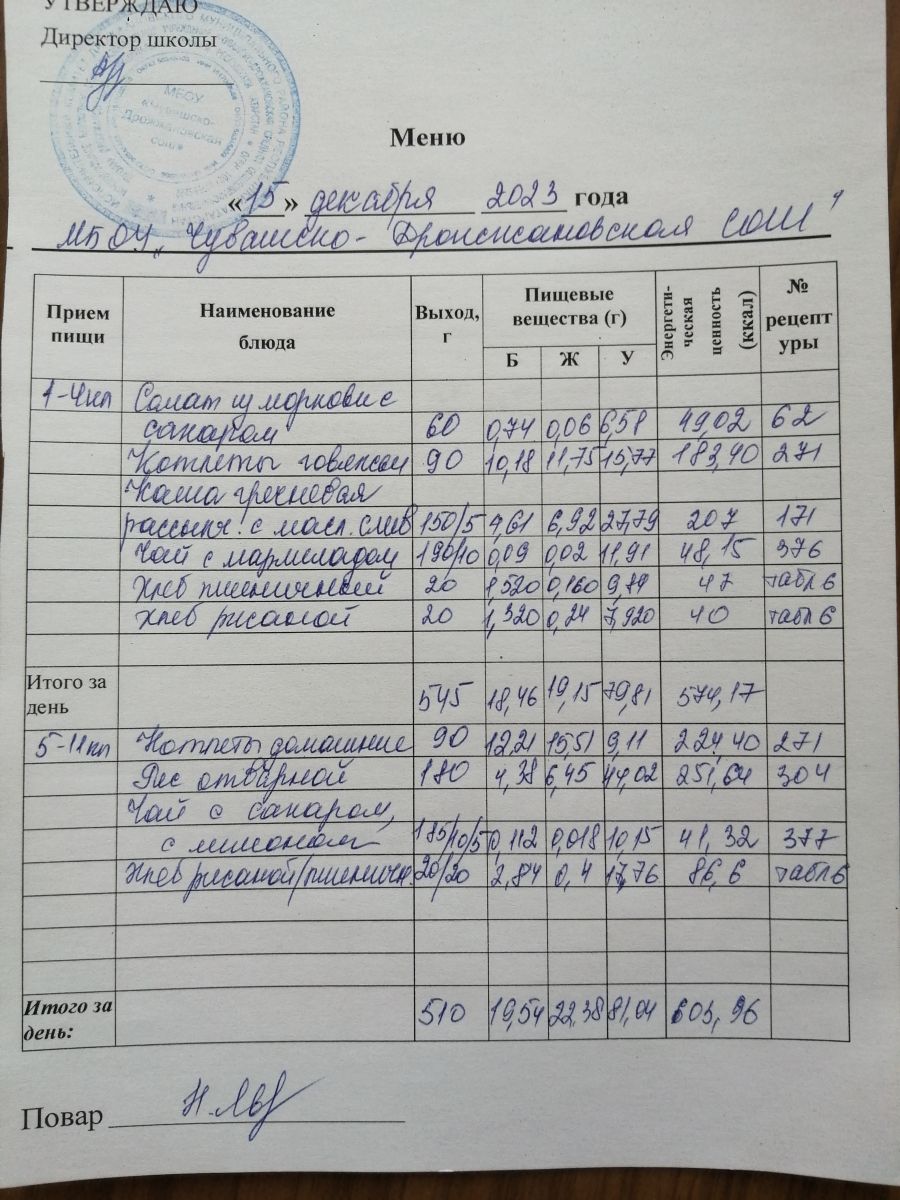 УТВЕРЖДАЮ
Директор школы
МБОУ
«Чувашско-
Дрожжановская
сош»
Меню
«15» декабря 2023 года
МБОУ „Чувашско-Дрожжановская СОШ"
Прием пищи Наименование блюда Выход, г Пищевые вещества (г) Энергети-ческая ценность (ккал) № рецептуры
Б Ж У
1-4кл Салат из моркови с
сахаром 60 0,74 0,06 6,58 49,02 62
Котлеты говяжьи 90 10,18 11,75 15,77 183,40 271
Каша гречневая
рассыпч. с масл. слив 150/5 4,61 6,92 27,79 207 171
Чай с мармеладом 190/10 0,09 0,02 11,91 48,15 376
Хлеб пшеничный 20 1,520 0,160 9,84 47 табл 6
Хлеб ржаной 20 1,320 0,24 7,920 40 табл 6
Итого за день 545 18,46 19,15 79,81 574,17
5-11кл Котлеты домашние 90 12,21 15,51 9,11 224,40 271
Рис отварной 180 4,38 6,45 44,02 251,64 304
Чай с сахаром,
с лимоном 185/10/5 0,112 0,018 10,15 41,32 377
Хлеб ржаной/пшеничн. 20/20 2,84 0,4 17,76 86,6 табл 6
Итого за день: 510 19,54 22,38 81,04 603,96
Повар